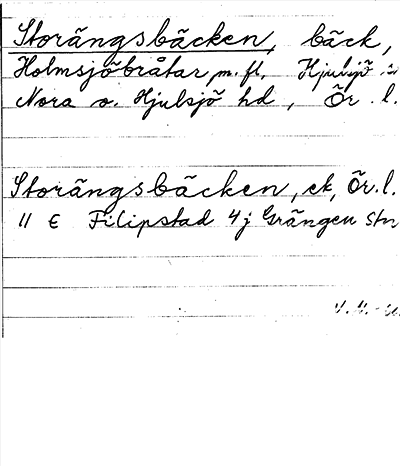 Storängsbäcken, bäck,
Holmsjöbråtar m. fl, Hjulsjö
Nora o. Hjulsjö hd, Ör. l.
Storängsbäcken, ek, Ör. l.
11 C Filipstad 4j Grängen